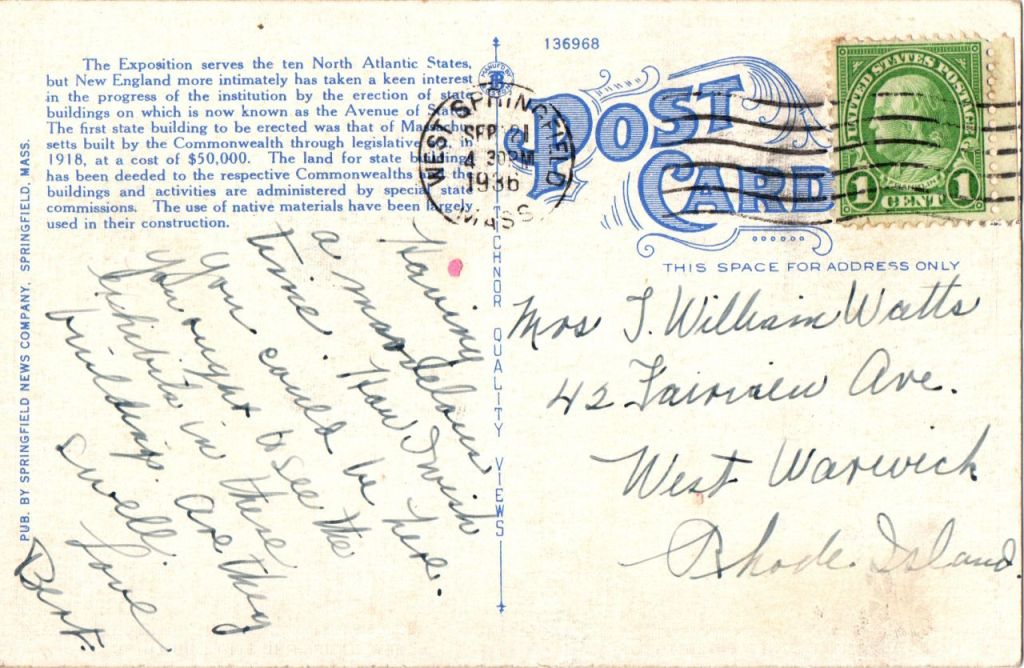 136968
The Exposition serves the ten North Atlantic States,
but New England more intimately has taken a keen interest
in the progress of the institution by the erection of state
buildings on which is now known as the Avenue of
The first state building to be erected was that of Massachu-
setts built by the Commonwealth through legislative
1918, at a cost of $50,000. The land for state buildings
has been deeded to the respective Commonwealths the
buildings and activities are administered by special state
commissions. The use of native materials have been largely
used in their construction.
PUB. BY SPRINGFIELD NEWS COMPANY, SPRINGFIELD, MASS.
TICHNOR QUALITY VIEWS
WEST SPRINGFIELD
SEP 21
4 30PM
1936
MASS
POST
CARD
UNITED STATES POSTAGE
FRANKLIN
1 CENT 1
THIS SPACE FOR ADDRESS ONLY
Having
a marvelous
time. How I wish
you could be here.
You ought to see the
exhibits in these
buildings. Are they
swell.
Love
Bert.
Mrs J. William Watts
42 Fairview Ave.
West Warwick
Rhode Island